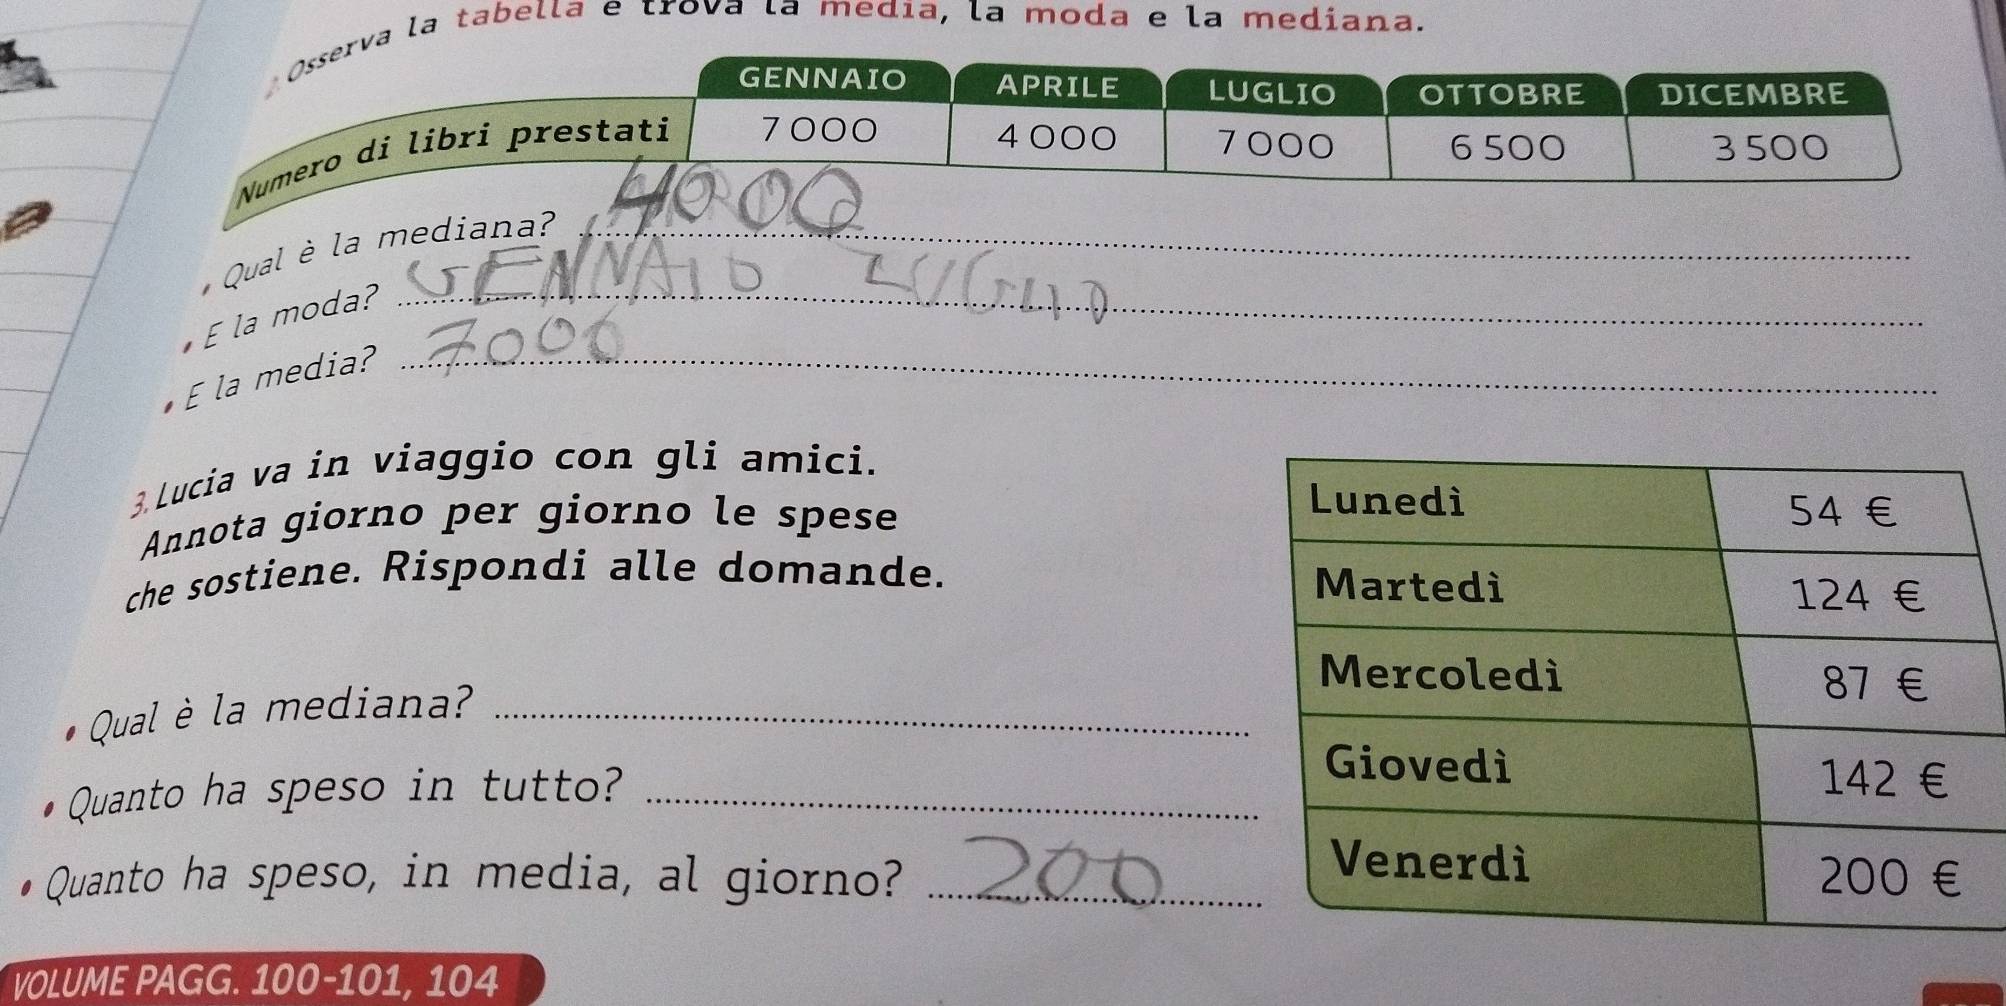 2. Osserva la tabella e trova la media, la moda e la mediana.
GENNAIO APRILE LUGLIO OTTOBRE DICEMBRE
Numero di libri prestati 7 000 4 000 7 000 6 500 3 500
• Qual è la mediana? 4000
• E la moda? GENNAIO LUGLIO
• E la media? 7000
3. Lucia va in viaggio con gli amici.
Annota giorno per giorno le spese
che sostiene. Rispondi alle domande.
• Qual è la mediana?
• Quanto ha speso in tutto?
• Quanto ha speso, in media, al giorno? 200
Lunedì 54 €
Martedì 124 €
Mercoledì 87 €
Giovedì 142 €
Venerdì 200 €
VOLUME PAGG. 100-101, 104